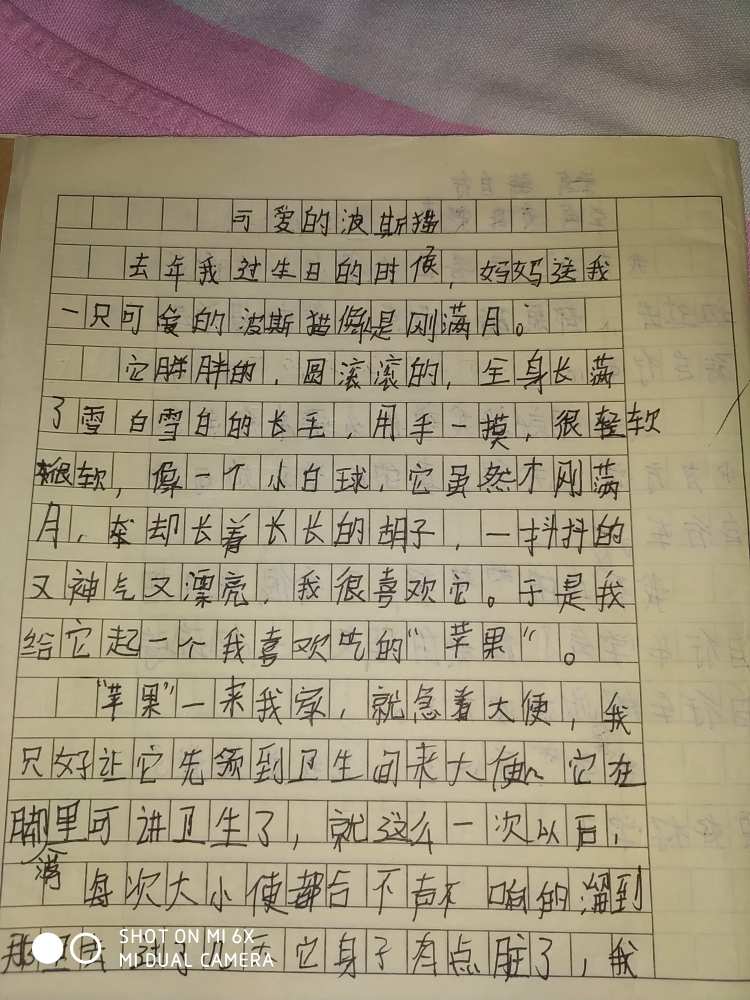 可爱的波斯猫
去年我过生日的时候，妈妈送我
一只可爱的波斯猫像是刚满月。
它胖胖的，圆滚滚的，全身长满
了雪白雪白的长毛，用手一摸，很轻软
很软，像一个小白球，它虽然才刚满
月，却长着长长的胡子，一抖抖的
又神气又漂亮，我很喜欢它。于是我
给它起一个我喜欢吃的“苹果”。
“苹果”一来我家，就急着大便，我
只好让它先领到卫生间来大便。它在
脚里可讲卫生了，就这么一次以后，
每次大小便都 不声不响的溜到
那里 它身子有点脏了，我
SHOT ON MI 6X
MI DUAL CAMERA